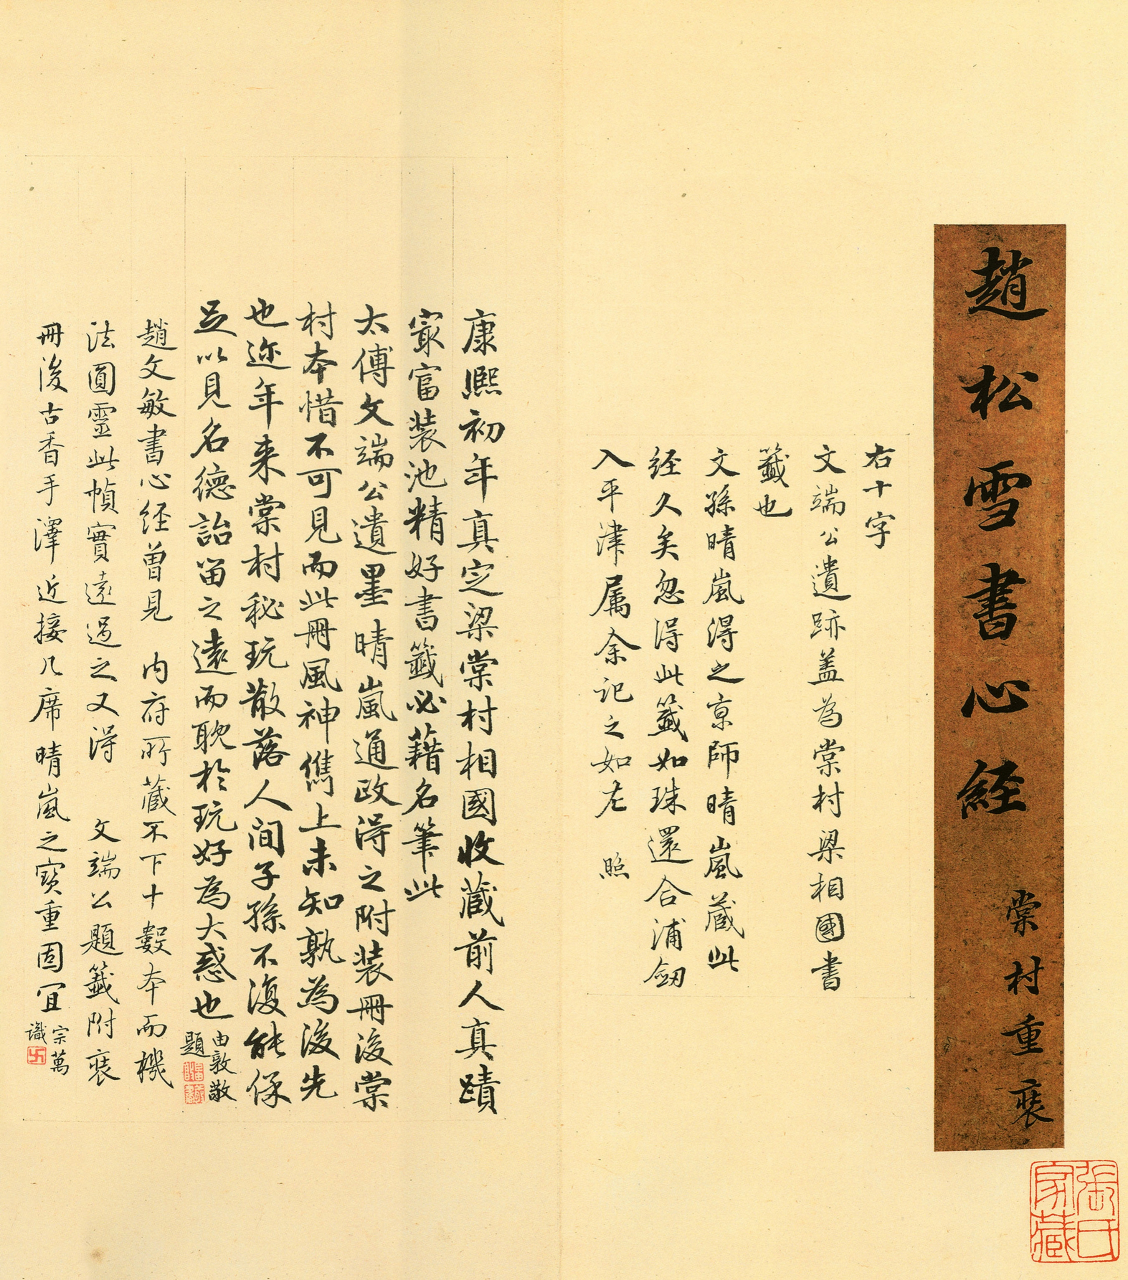 趙松雪書心経
棠村重裝
張氏家藏
右十字
文端公遺跡盖為棠村梁相國書
籤也
文孫晴嵐淂之京師晴嵐蔵此
経久矣忽淂此籤如珠還合浦劔
入平津属余記之如左　照
康熙初年真定梁棠村相國收蔵前人真蹟
冣富装池精好書籤必藉名筆此
太傅文端公遺墨晴嵐通政淂之附装冊後棠
村本惜不可見而此冊風神儁上未知孰為後先
也迩年来棠村秘玩散落人間子孫不復能保
足以見名德詒留之遠而耽於玩好為大惑也
由敦敬
題
趙文敏書心経曽見　内府所藏不下十數本而機
法圓靈此幀實遠過之又淂　文端公題籤附裝
冊後古香手澤近接几席晴嵐之寶重固宜
宗萬
識